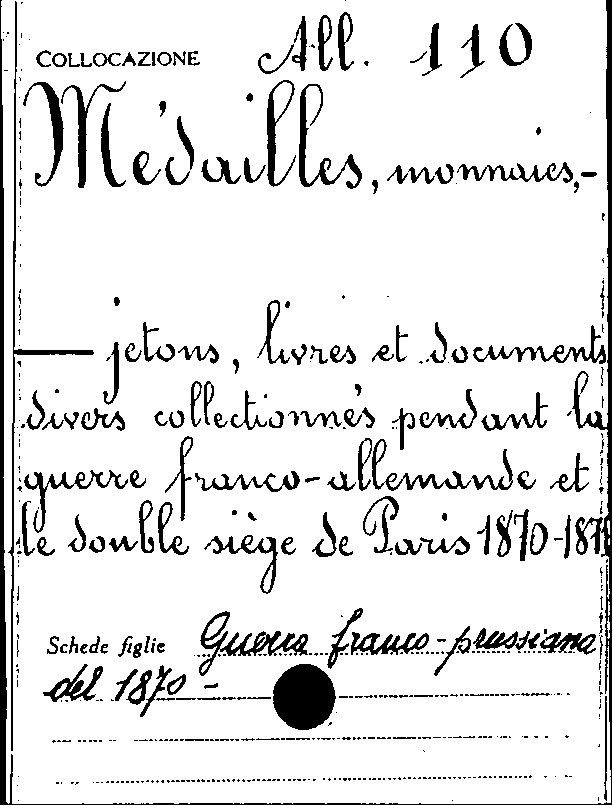 COLLOCAZIONE All. 110
Médailles, monnaies,-
— jetons, livres et documents
divers collectionnés pendant la
guerre franco-allemande et
le double siège de Paris 1870-1871
Schede figlie Guerra franco-prussiana
del 1870 -